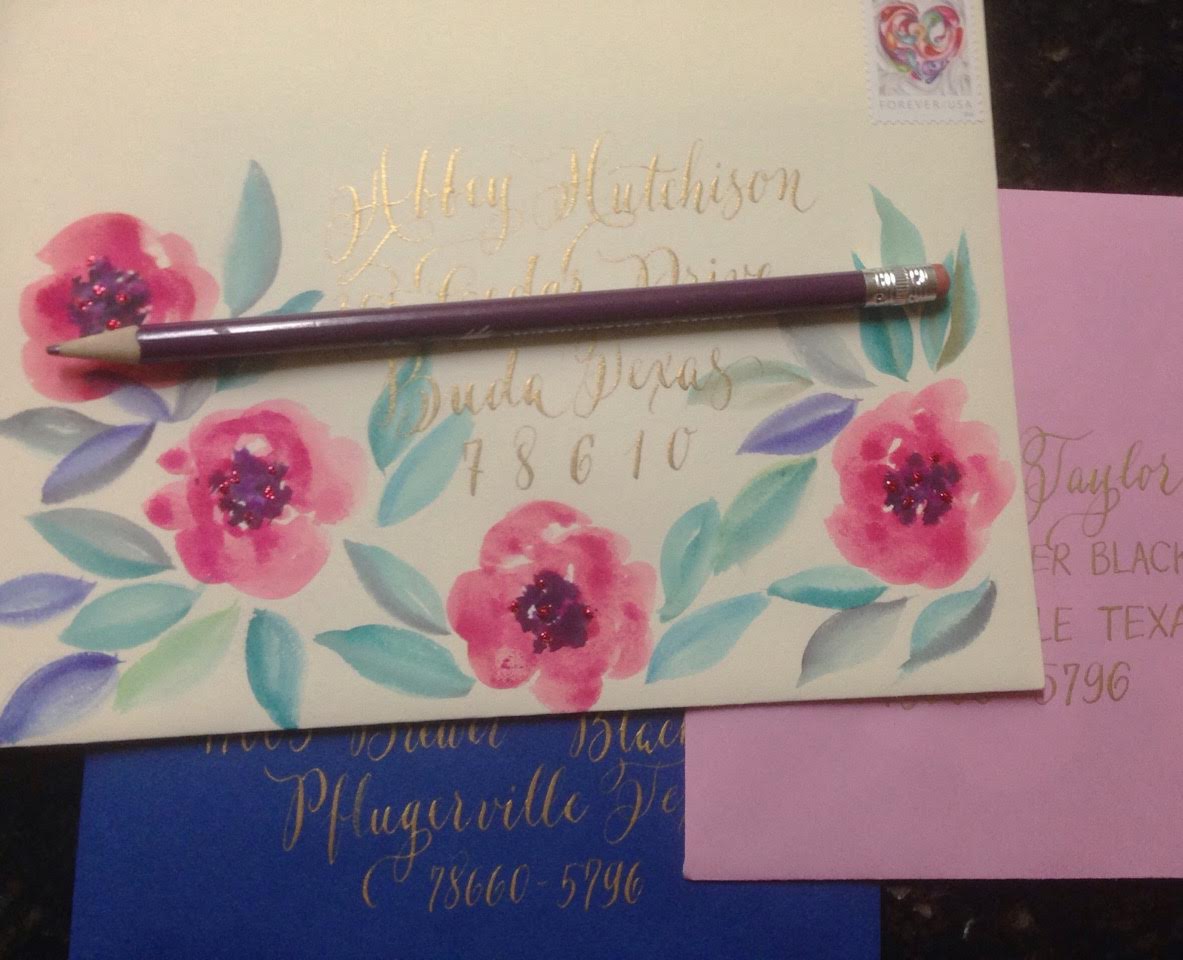 FOREVER/USA
Abbey Hutchison
Drive
Buda Texas
78610
Taylor
ER BLACK
LE TEXA
5796
Brewer Black
Pflugerville Te
78660-5796